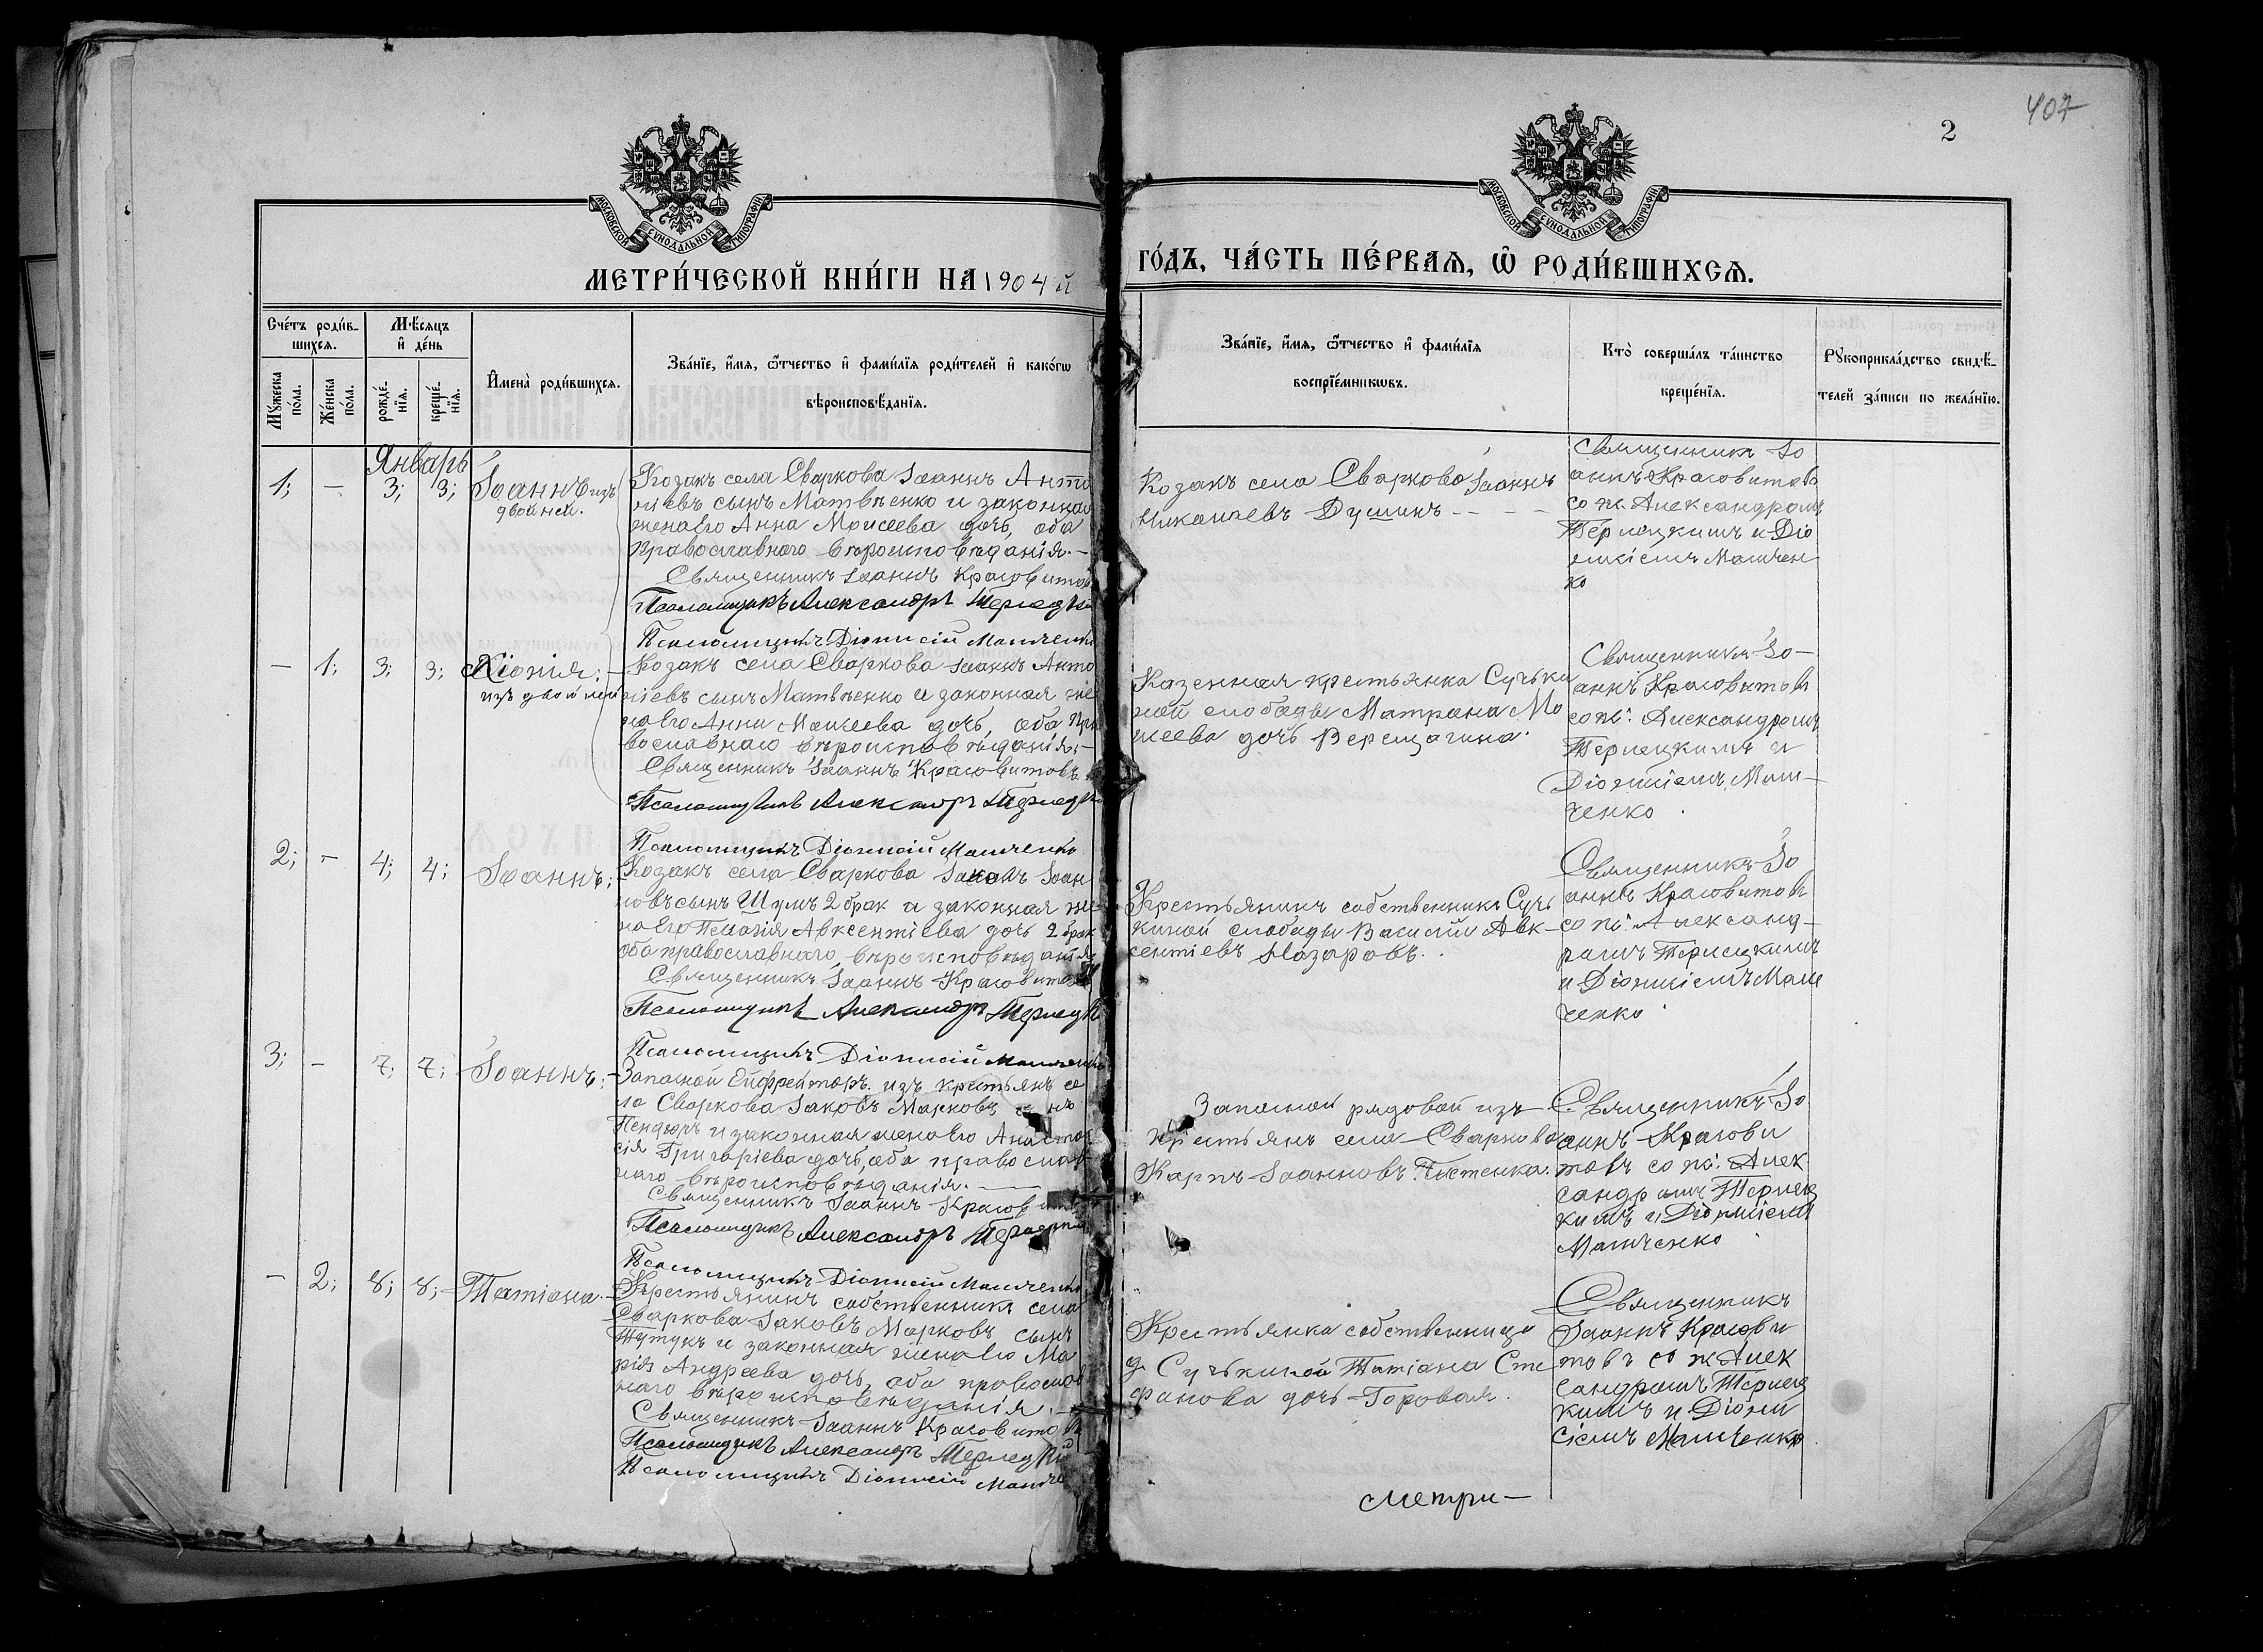 407
2
МОСКОВСКОЙ СѴНОДАЛЬНОЙ ТИПОГРАФІИ
МОСКОВСКОЙ СѴНОДАЛЬНОЙ ТИПОГРАФІИ
МЕТРИ́ЧЕСКОЙ КНИ́ГИ НА 1904й
ГО́ДЪ, ЧА́СТЬ ПЕ́РВАѦ, Ѡ҆ РОДИ́ВШИХСѦ.
Сче́тъ роди́в-
шихсѧ.
Мꙋ́жеска
по́ла.
Же́нска
по́ла.
Мѣ́сѧцъ
и҆ де́нь
рожде́-
нїѧ.
креще́-
нїѧ.
И҆мена̀ роди́вшихсѧ.
Зва́нїе, и҆́мѧ, ѻ҆́тчество и҆ фами́лїѧ роди́телей и҆ како́гѡ
вѣроисповѣ́данїѧ.
Зва́нїе, и҆́мѧ, ѻ҆́тчество и҆ фами́лїѧ
воспрїе́мникѡвъ.
Кто̀ соверша́лъ та́инство
креще́нїѧ.
Рꙋкоприкла́дство свидѣ́-
телей за́писи по жела́нїю.
Январь
1; - 3; 3; Іоаннъ изъ
двойней.
Козакъ села Сваркова Іоаннъ Анто
ніевъ сынъ Матвѣенко и законная
жена его Анна Моисеева дочь, оба
православнаго вѣроисповѣданія.-
Священникъ Іоаннъ Красовитовъ
Псаломщикъ Александръ Терлецкій
Псаломщикъ Діонисій Мамченко
Козакъ села Сварково Іоаннъ
Душинъ - - -
Священникъ Іо
аннъ Красовитовъ
со пс. Александромъ
Терлецкимъ и Діо
нисіемъ Мамчен
ко
- 1; 3; 3; Хіонія;-
изъ двойней
Козакъ села Сваркова Іоаннъ Анто
ніевъ сынъ Матвѣенко и законная же
на его Анна Моисеева дочь, оба пра
вославнаго вѣроисповѣданія;-
Священникъ Іоаннъ Красовитовъ
Псаломщикъ Александръ Терлецкій
Псаломщикъ Діонисій Мамченко
Казенная крестьянка Сучьки
ной слободы Матрона Мо
исеева дочь Верещагина.
Священникъ Іо-
аннъ Красовитовъ
со пс. Александромъ
Терлецкимъ и
Діонисіемъ Мам-
ченко.
2; - 4; 4; Іоаннъ;-
Козакъ села Сваркова Іаковъ Іоан
новъ сынъ Шумъ 2 брак и законная же-
на его Пелагія Авксентіева дочь 2 брак
оба православнаго вѣроисповѣданія
Священникъ Іоаннъ Красовитовъ
Псаломщикъ Александръ Терлецкій
Псаломщикъ Діонисій Мамченко
Крестьянинъ собственникъ Сучь
киной слободы Василій Авк-
сентіевъ Назаровъ.
Священникъ Іо
аннъ Красовитовъ
со пс. Александ-
ромъ Терлецкимъ
и Діонисіемъ Мам
ченко
3; - 7; 7; Іоаннъ;-
Запасной Ейфрейторъ изъ крестьянъ се
ла Сваркова Іаковъ Марковъ сынъ
и законная жена его Анаста
сія Григоріева дочь, оба православ
наго вѣроисповѣданія.
Священникъ Іоаннъ Красовитовъ
Псаломщикъ Александръ Терлецкій
Псаломщикъ Діонисій Мамченко
Запасной рядовой изъ
крестьянъ села Сваркова
Карпъ Іоанновъ
Священникъ Іо
аннъ Красови
товъ со пс. Алек
сандромъ Терлец
кимъ и Діонисіемъ
Мамченко
- 2; 8; 8; Татіана.-
Крестьянинъ собственникъ села
Сваркова Іаковъ Марковъ сынъ
Тутукъ и законная жена его Ма
рія Андреева дочь, оба православ
наго вѣроисповѣданія.-
Священникъ Іоаннъ Красовитовъ
Псаломщикъ Александръ Терлецкій
Псаломщикъ Діонисій Мамче
Крестьянка собственница
д. Сучькиной Татіана Сте
фанова дочь Горовая.
Священникъ
Іоаннъ Красови
товъ со пс Алек
сандромъ Терлец
кимъ и Діони
сіемъ Мамченко
Метри-